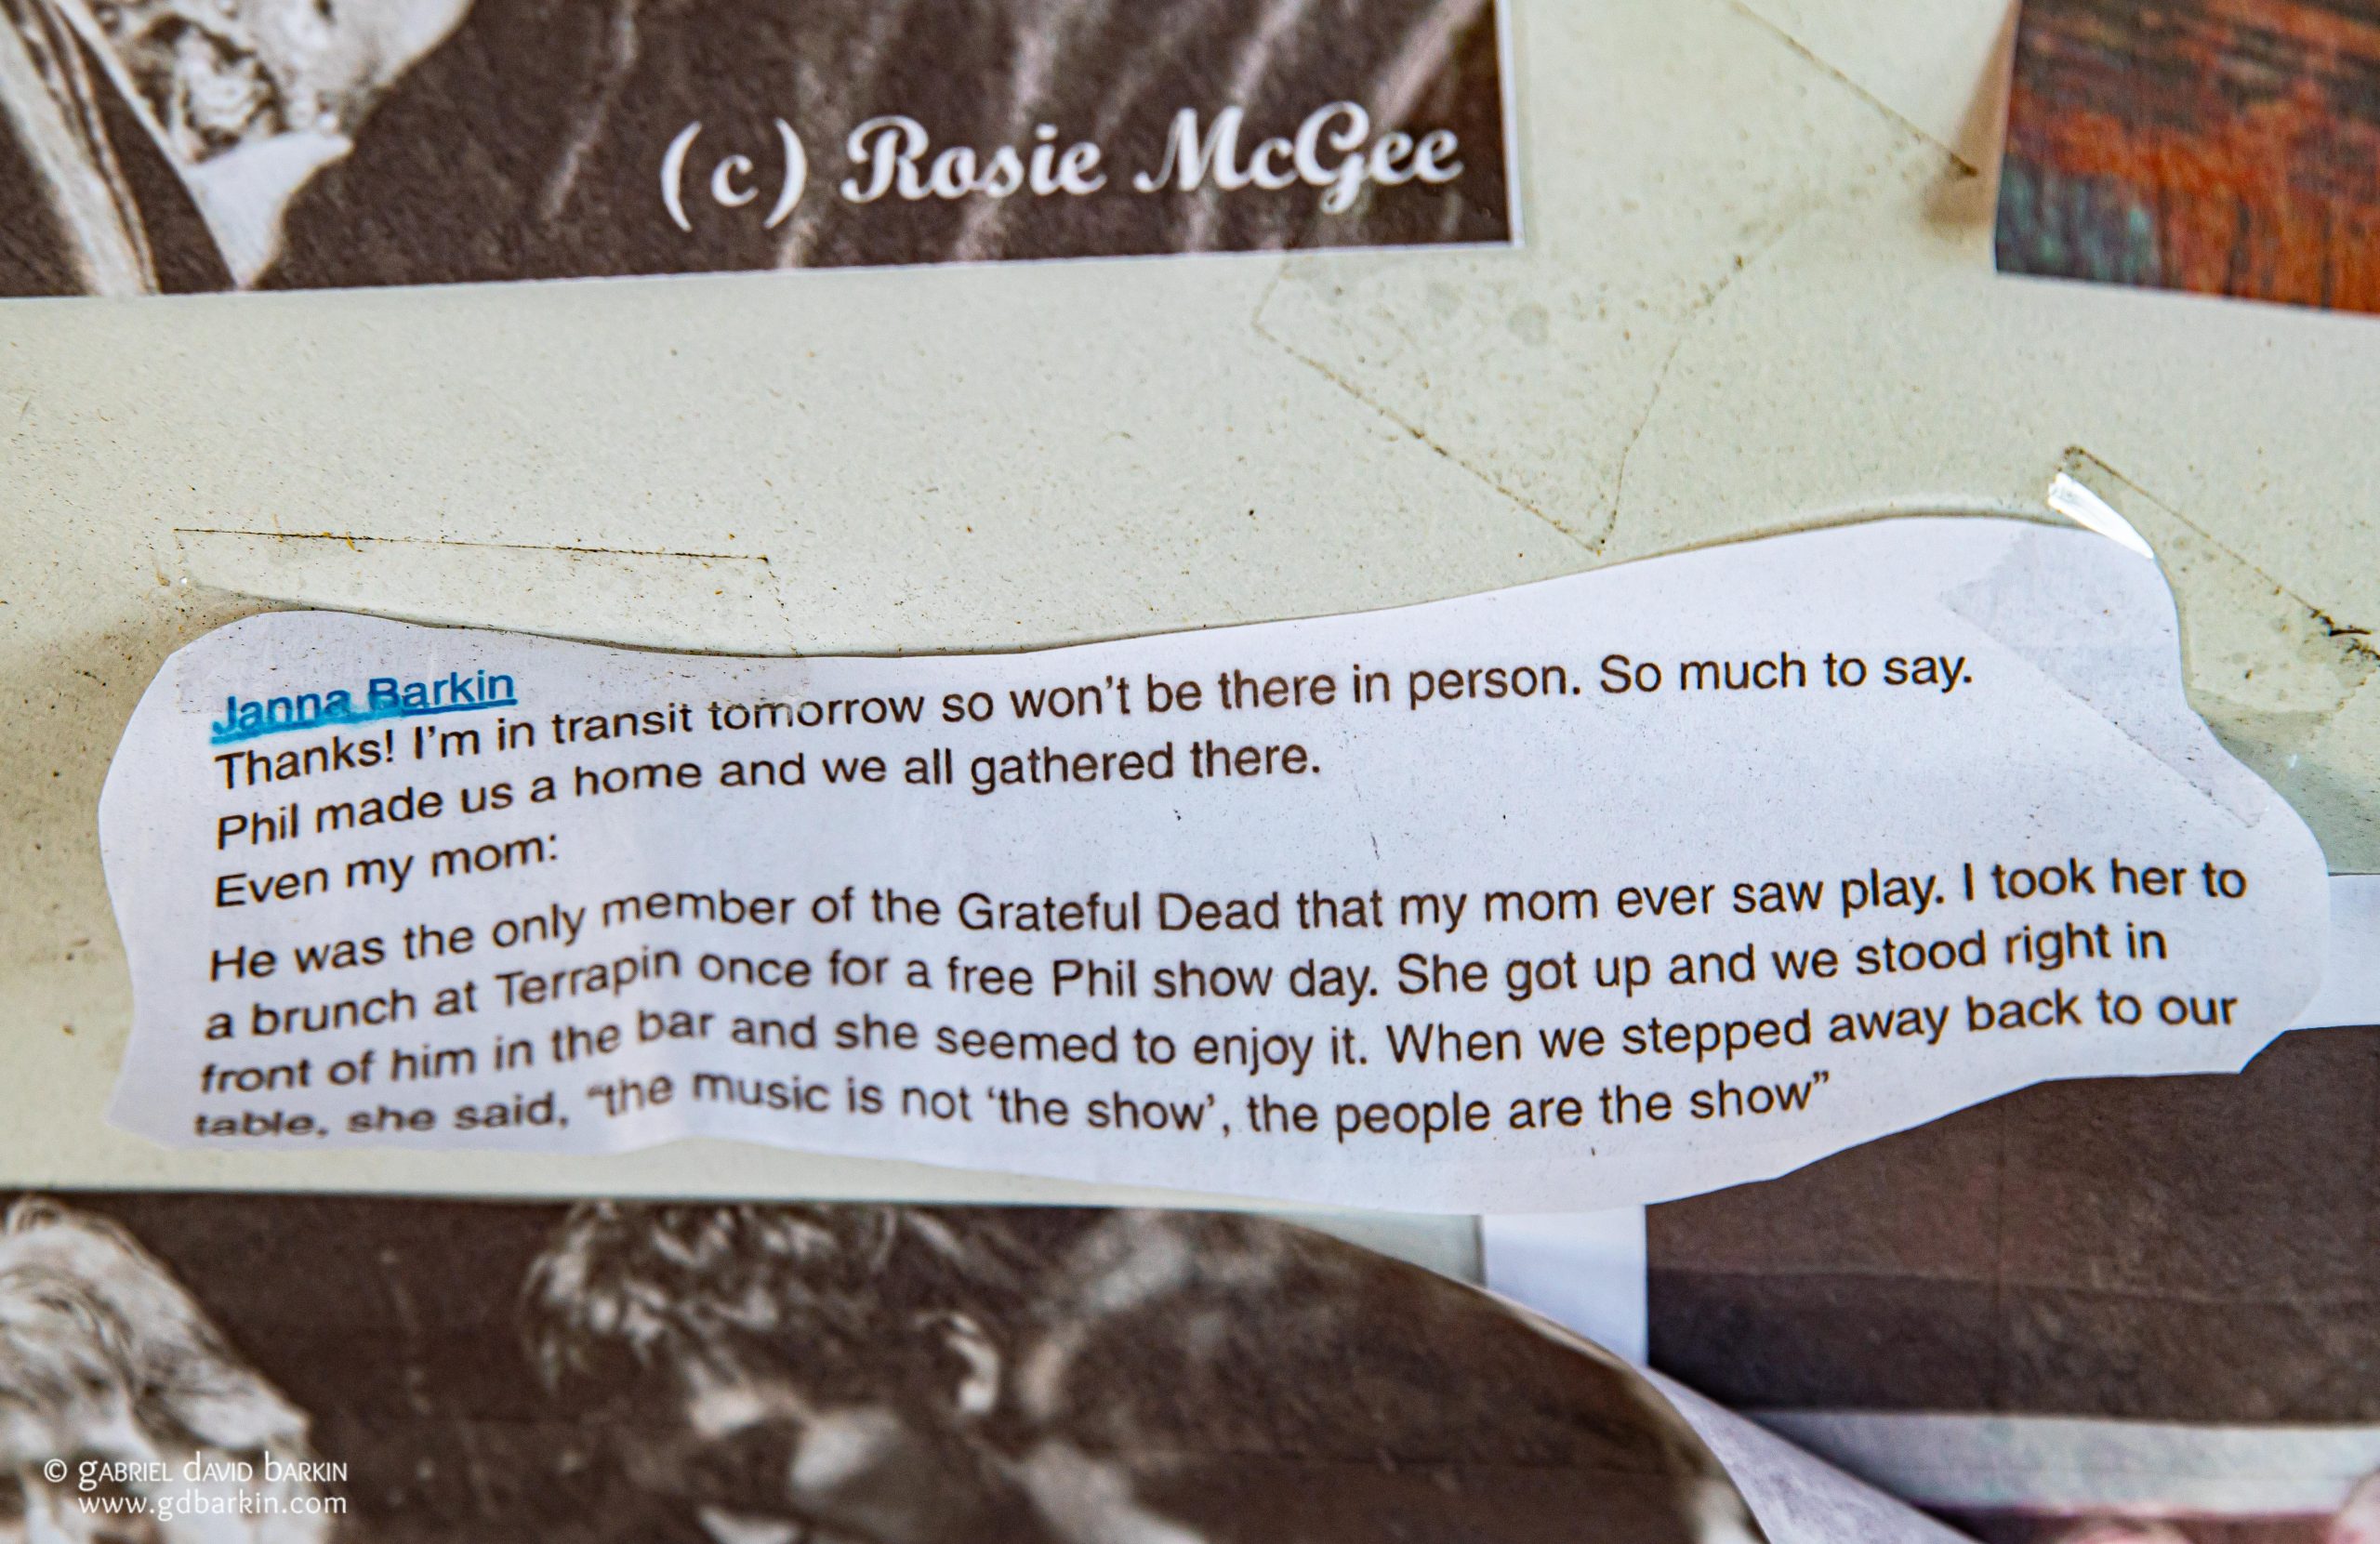 (c) Rosie McGee
Janna Barkin
Thanks! I'm in transit tomorrow so won't be there in person. So much to say.
Phil made us a home and we all gathered there.
Even my mom:
He was the only member of the Grateful Dead that my mom ever saw play. I took her to
a brunch at Terrapin once for a free Phil show day. She got up and we stood right in
front of him in the bar and she seemed to enjoy it. When we stepped away back to our
table, she said, “the music is not ‘the show’, the people are the show”
© GABRIEL DAVID BARKIN
www.gdbarkin.com